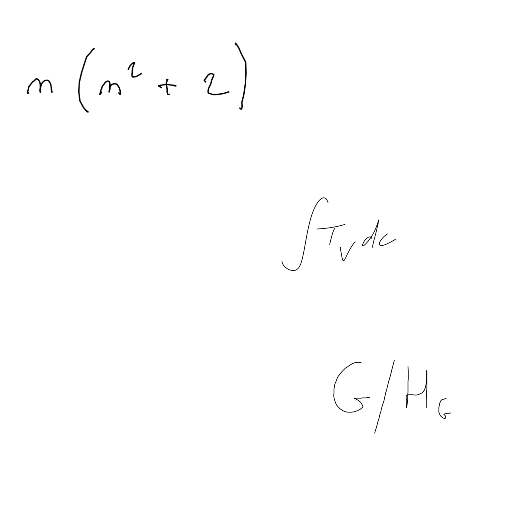 n(n² + 2)
∫T_v dc
G/H_G